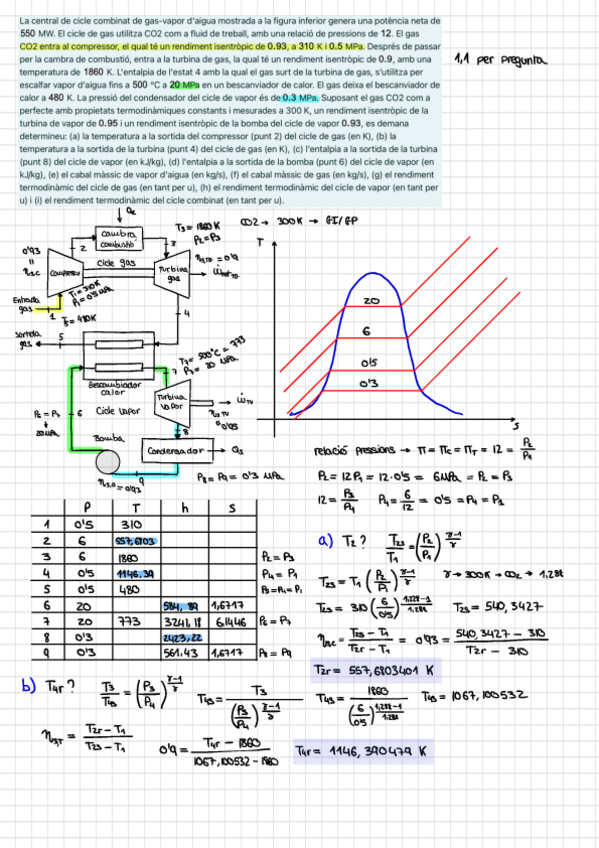 La central de cicle combinat de gas-vapor d'aigua mostrada a la figura inferior genera una potència neta de
550 MW. El cicle de gas utilitza CO2 com a fluid de treball, amb una relació de pressions de 12. El gas
CO2 entra al compressor, el qual té un rendiment isentròpic de 0.93, a 310 K i 0.5 MPa. Després de passar
per la cambra de combustió, entra a la turbina de gas, la qual té un rendiment isentròpic de 0.9, amb una
temperatura de 1860 K. L'entalpia de l'estat 4 amb la qual el gas surt de la turbina de gas, s'utilitza per
escalfar vapor d'aigua fins a 500 °C a 20 MPa en un bescanviador de calor. El gas deixa el bescanviador de
calor a 480 K. La pressió del condensador del cicle de vapor és de 0.3 MPa. Suposant el gas CO2 com a
perfecte amb propietats termodinàmiques constants i mesurades a 300 K, un rendiment isentròpic de la
turbina de vapor de 0.95 i un rendiment isentròpic de la bomba del cicle de vapor 0.93, es demana
determineu: (a) la temperatura a la sortida del compressor (punt 2) del cicle de gas (en K), (b) la
temperatura a la sortida de la turbina (punt 4) del cicle de gas (en K), (c) l'entalpia a la sortida de la turbina
(punt 8) del cicle de vapor (en kJ/kg), (d) l'entalpia a la sortida de la bomba (punt 6) del cicle de vapor (en
kJ/kg), (e) el cabal màssic de vapor d'aigua (en kg/s), (f) el cabal màssic de gas (en kg/s), (g) el rendiment
termodinàmic del cicle de gas (en tant per u), (h) el rendiment termodinàmic del cicle de vapor (en tant per
u) i (i) el rendiment termodinàmic del cicle combinat (en tant per u).
1,1 per pregunta
Qe
cambra combustió
T3 = 1860 K
P2 = P3
CO2 → 300K → GI/GP
0'93
=
ηsc
2
3
compressor
cicle gas
Turbina gas
ηsTG = 0'9
T1 = 310K
P1 = 0'5 MPa
Entrada gas
1
T5 = 480K
4
sortida gas
5
Bescanviador calor
7
T7 = 500°C = 773
P7 = 20 MPa
P6 = P7
20 MPa
6
Cicle vapor
Turbina vapor
ẆTV
ηsTV = 0'95
8
Bomba
Condensador
Qs
ηs,B = 0'93
9
P8 = P9 = 0'3 MPa
T
20
6
0'5
0'3
s
relació pressions → Π = ΠC = ΠT = 12 = P2/P1
P2 = 12P1 = 12·0'5 = 6MPa = P2 = P3
12 = P3/P4 P4 = 6/12 = 0'5 = P4 = P1
P T h s
1 0'5 310
2 6 557,6803
3 6 1860 P2 = P3
4 0'5 1146,39 P4 = P1
5 0'5 480 P5 = P4 = P1
6 20 584,89 1,6717
7 20 773 3241,18 6,1446 P6 = P7
8 0'3 2423,22
9 0'3 561,43 1,6717 P8 = P9
a) T2? T2s/T1 = (P2/P1)^(γ-1/γ)
T2s = T1 (P2/P1)^(γ-1/γ) γ → 300K → CO2 → 1,288
T2s = 310 (6/0'5)^(1,288-1/1,288) T2s = 540,3427
ηsc = T2s - T1/T2r - T1 = 0'93 = 540,3427 - 310/T2r - 310
T2r = 557,6803401 K
b) T4r? T3/T4s = (P3/P4)^(γ-1/γ) T4s = T3/(P3/P4)^(γ-1/γ) T4s = 1860/(6/0'5)^(1,288-1/1,288) T4s = 1067,100532
ηs,T = T2r - T1/T2s - T1 0'9 = T4r - 1860/1067,100532 - 1860 T4r = 1146,390479 K